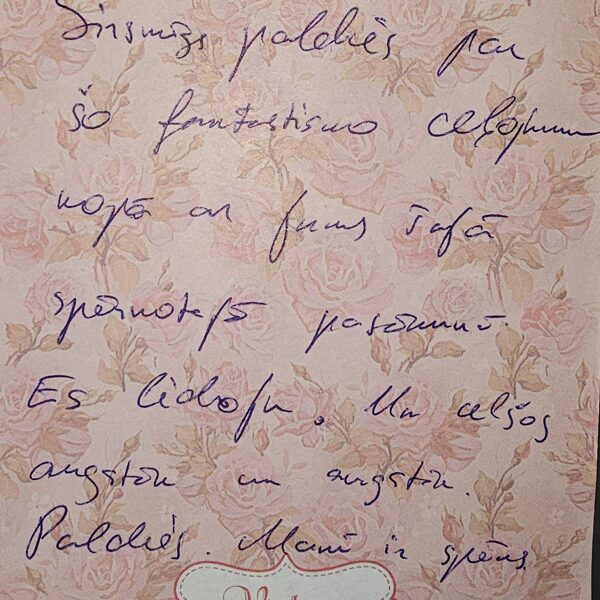 Sirsnīgs paldies par
šo fantastisko ceļojumu
kopā ar jums šajā
spārnotajā pasākumā.
Es lidoju. Un ceļšos
augstāk un augstāk.
Paldies. Manī ir spēks